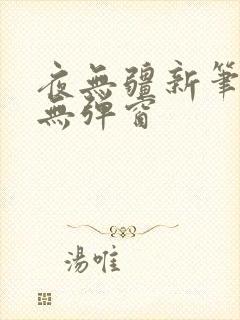 夜無疆新筆
無彈窗
湯唯